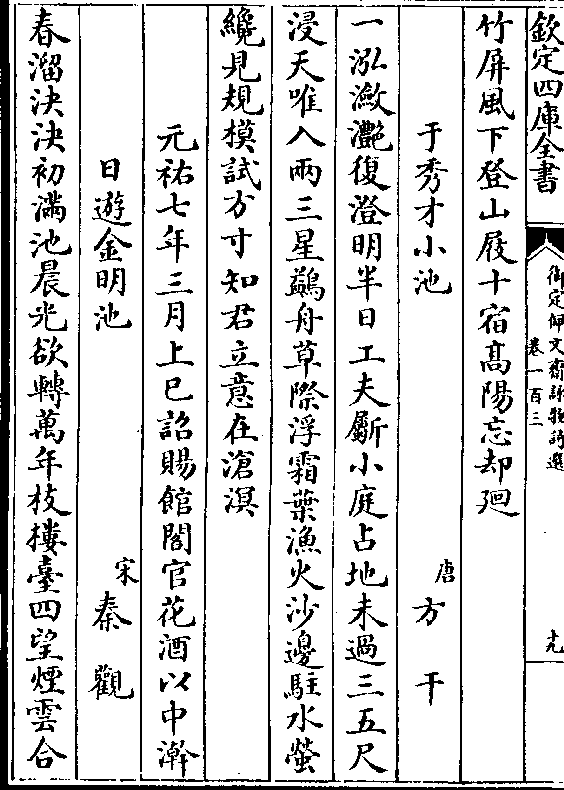 欽定四庫全書
御定佩文齋詠物詩選
卷一百三
十九
竹屏風下登山屐十宿髙陽忘却廻
于秀才小池
唐
方干
一泓瀲灧復澄明半日工夫斸小庭占地未過三五尺
浸天唯入兩三星鷁舟草際浮霜葉漁火沙邊駐水螢
纔見規模試方寸知君立意在滄溟
元祐七年三月上巳詔賜館閣官花酒以中澣
日遊金明池
宋
秦觀
春溜泱泱初滿池晨光欲轉萬年枝樓臺四望煙雲合